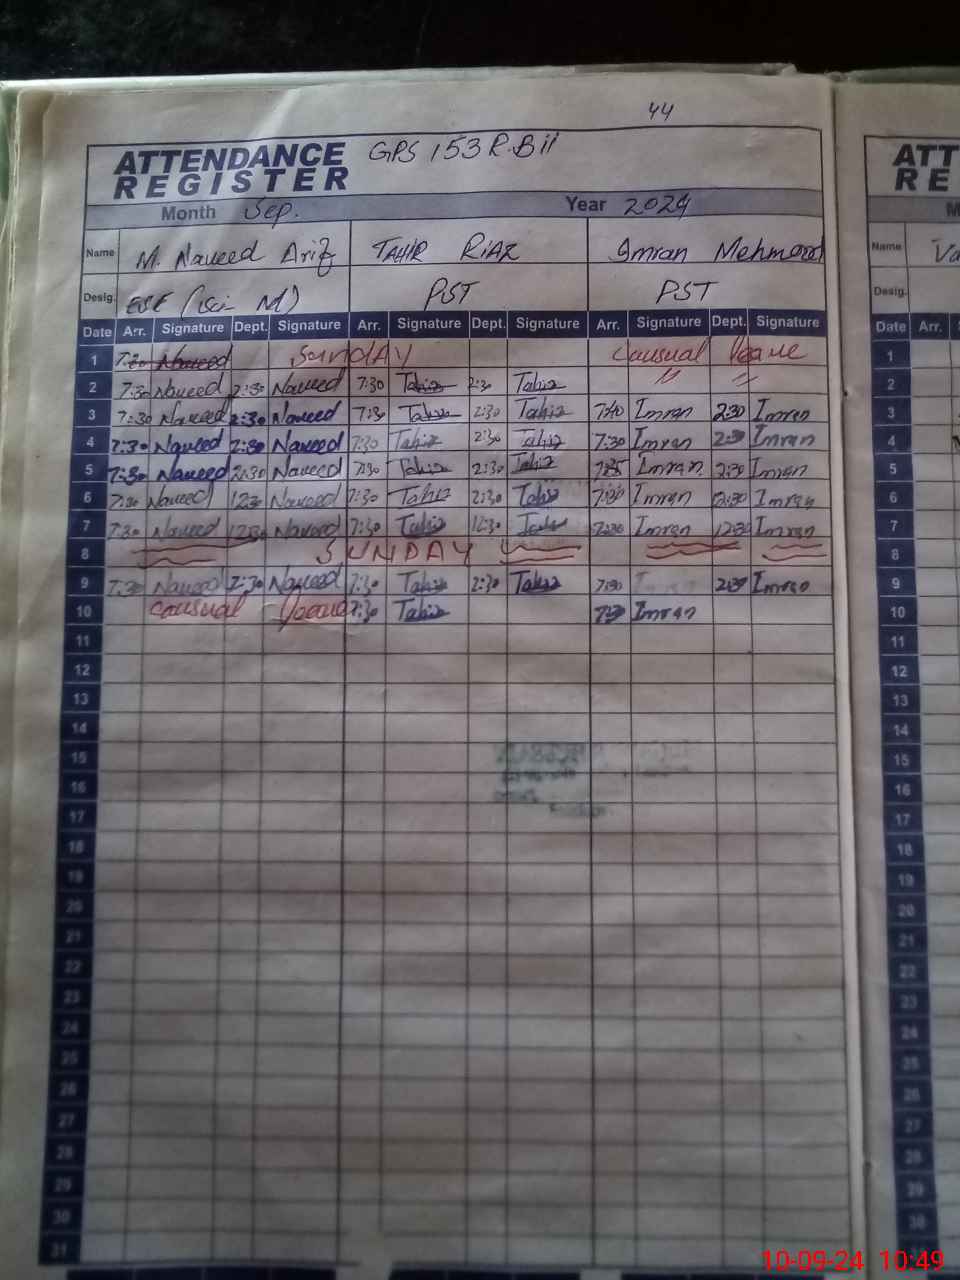 44
ATTENDANCE REGISTER GPS 153 R.B II
Month Sep. Year 2024
Name M. Naveed Arif TAHIR RIAZ Imran Mehmood
Desig. ESE (Sci M) PST PST
Date Arr. Signature Dept. Signature Arr. Signature Dept. Signature Arr. Signature Dept. Signature
1 7:30 Naveed SunDAY Causual Leave
2 7:30 Naveed 2:30 Naveed 7:30 Tahir 2:30 Tahir " "
3 7:30 Naveed 2:30 Naveed 7:30 Tahir 2:30 Tahir 7:40 Imran 2:30 Imran
4 7:30 Naveed 2:30 Naveed 7:30 Tahir 2:30 Tahir 7:30 Imran 2:30 Imran
5 7:30 Naveed 2:30 Naveed 7:30 Tahir 2:30 Tahir Imran 2:30 Imran
6 7:30 Naveed 12:30 Naveed 7:30 Tahir 2:30 Tahir 7:30 Imran 12:30 Imran
7 7:30 Naveed 12:30 Naveed 7:30 Tahir 12:30 Tahir 7:30 Imran 12:30 Imran
8 SUNDAY
9 7:30 Naveed 2:30 Naveed 7:30 Tahir 2:30 Tahir 7:30 Imran 2:30 Imran
10 Causual Leave 7:30 Tahir 7:30 Imran
11
12
13
14
15
16
17
18
19
20
21
22
23
24
25
26
27
28
29
30
31
ATT
RE
M
Name Va
Desig.
Date Arr. S
1
2
3
4
5
6
7
8
9
10
11
12
13
14
15
16
17
18
19
20
21
22
23
24
25
26
27
28
29
30
10-09-24 10:49